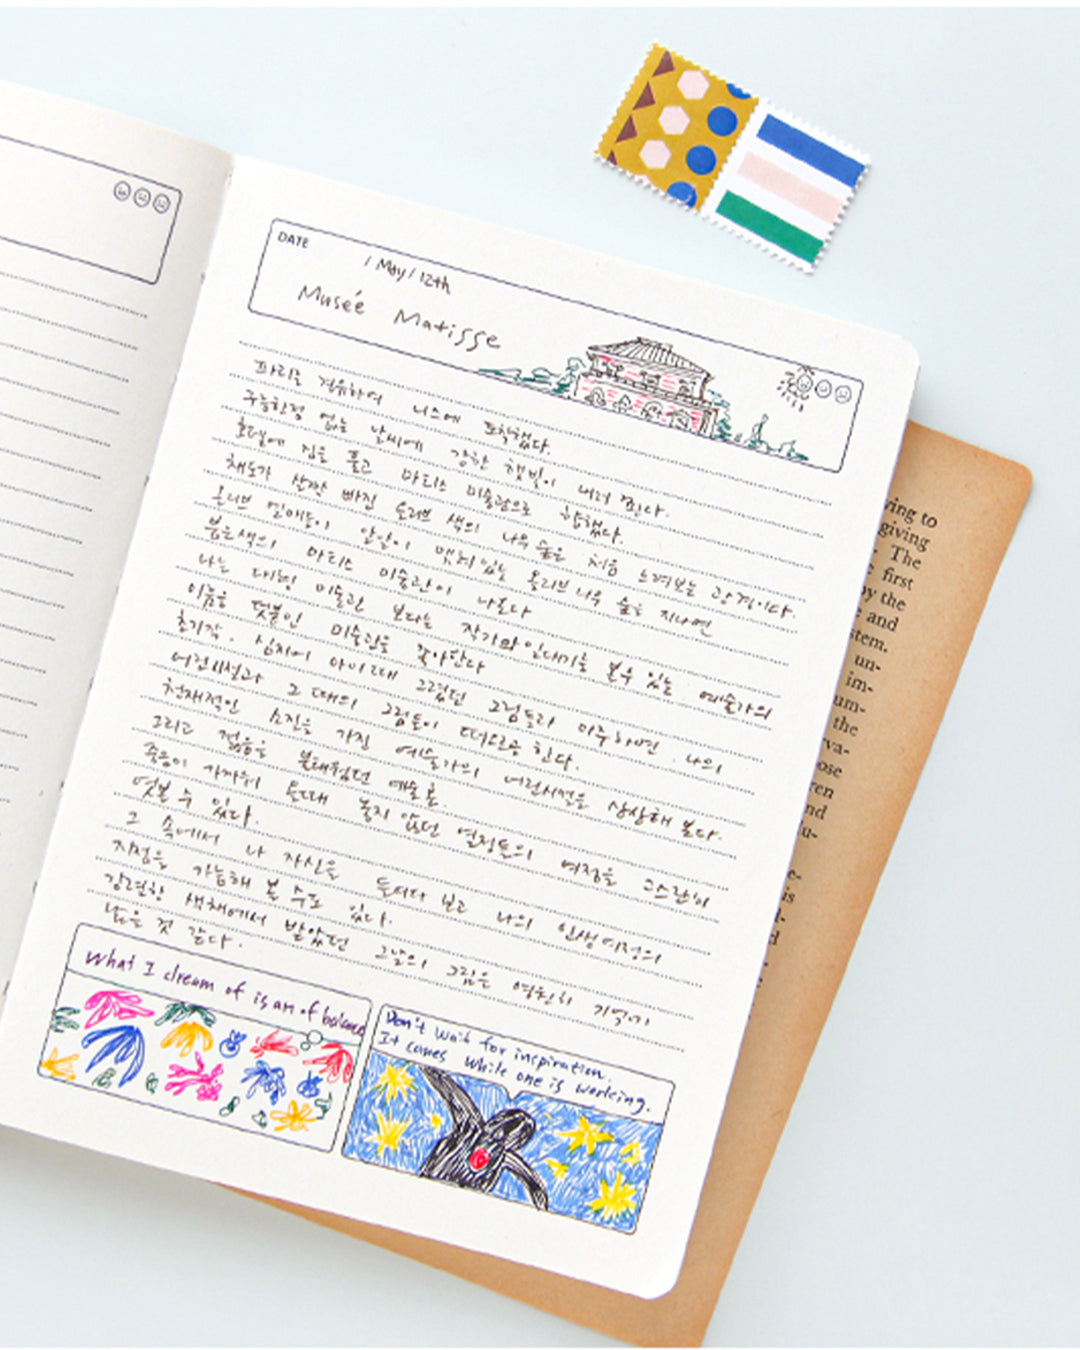 DATE
/ May / 12th
Museé Matisse
파리를 경유하여 니스에 도착했다.
구름한점 없는 날씨에 강한 햇빛이 내려 쬔다.
호텔에 짐을 풀고 마티스 미술관으로 향했다.
채도가 살짝 빠진 올리브 색의 나무 숲은 처음 느껴보는 광경이다.
올리브 열매들이 알알이 맺혀있는 올리브나무 숲을 지나면
붉은색의 마티스 미술관이 나온다
나는 대형 미술관 보다는 작가의 일대기를 볼수 있는 예술가의
이름을 덧붙인 미술관을 찾아간다
초기작, 심지어 아이때 그렸던 그림들과 마주하면 나의
어린시절과 그 때의 그림들이 떠오르곤 한다.
천재적인 소질을 가진 예술가의 어린시절을 상상해 본다.
그리고 젊음을 불태웠던 예술혼.
죽음이 가까워 올때 놓지 않았던 열정들의 여정을 고스란히
엿볼 수 있다.
그 속에서 나 자신을 들여다 보고 나의 인생여정의
지점을 가늠해 볼 수도 있다.
강렬한 색채에서 받았던 그날의 그림은 영원히 기억에
남을 것 같다.
What I dream of is an of balance
Don't wait for inspiration.
It comes while one is working.
ving to
giving
The
first
by the
and
stem.
un-
im-
um-
the
va-
ose
ren
nd
u-